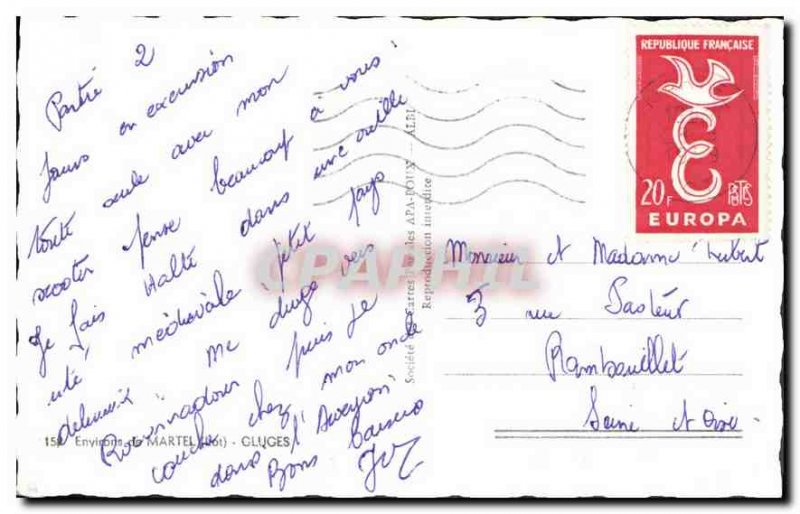 Partie 2
jours en excursion
toute seule avec mon
scooter pense beaucoup à vous.
Je fais halte dans une vieille
cité médiévale petit pays
delicieux me dirige vers
Rocamadour puis je
couche chez mon oncle
dans l'Aveyron
Bons baisers
159 Environs de MARTEL (Lot) - GLUGES
Société de Cartes Postales APA-POUX - ALBI
Reproduction interdite
REPUBLIQUE FRANÇAISE
20F
POSTES
EUROPA
Monsieur et Madame
3 rue Pasteur
Rambouillet
Seine et Oise
CPAPHIL